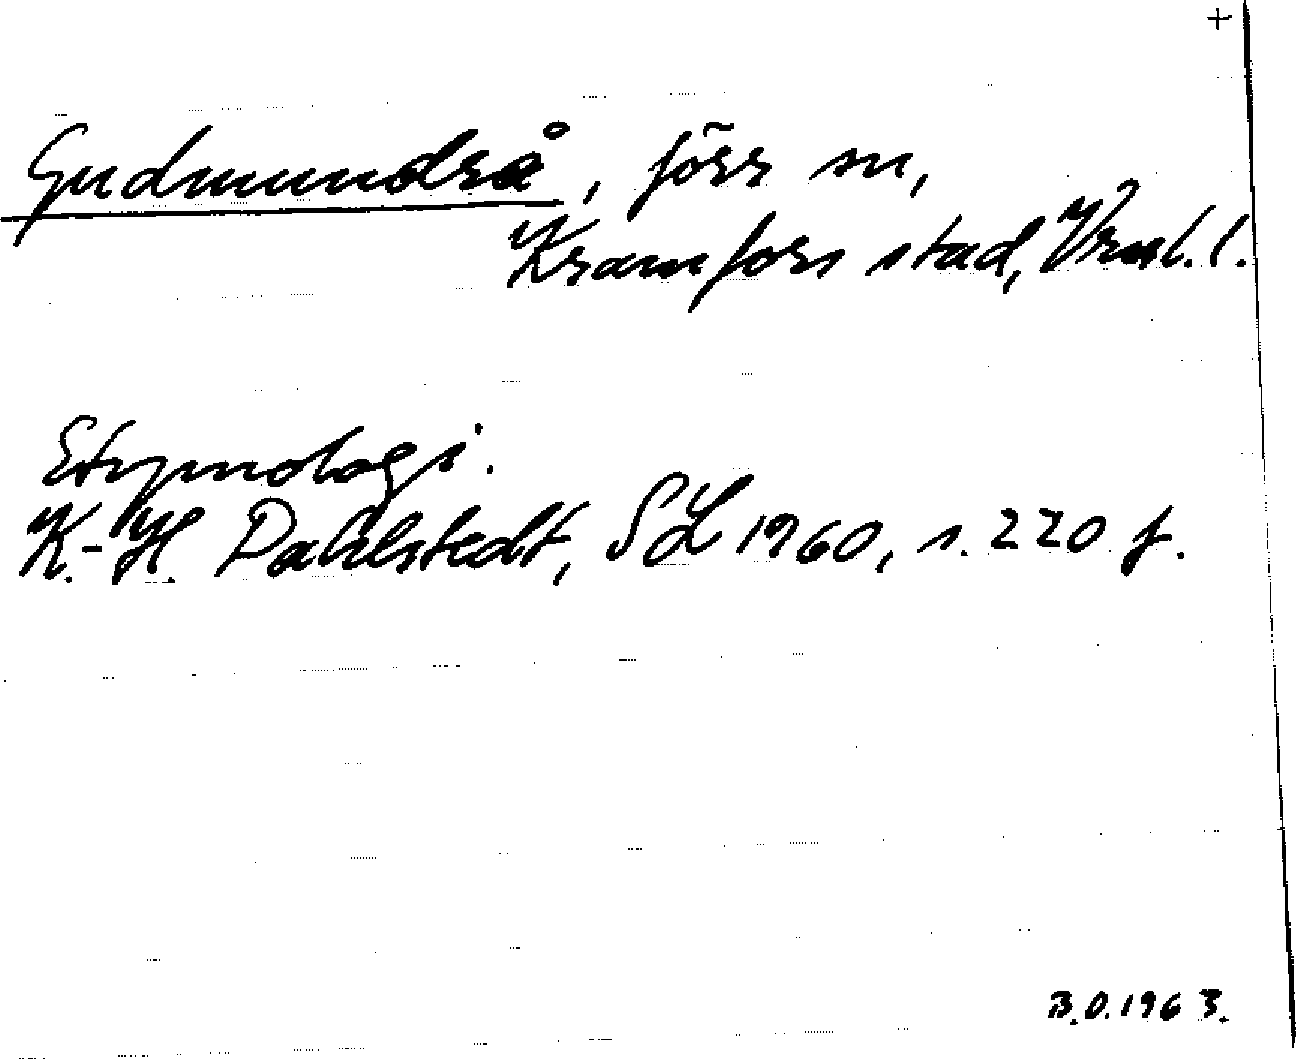 +
Gudmundrå, förr sn,
Kramfors stad, Vrnl. l.
Etymologi.
K.-H. Dahlstedt, SL 1960, s. 220 f.
B.O. 1963.